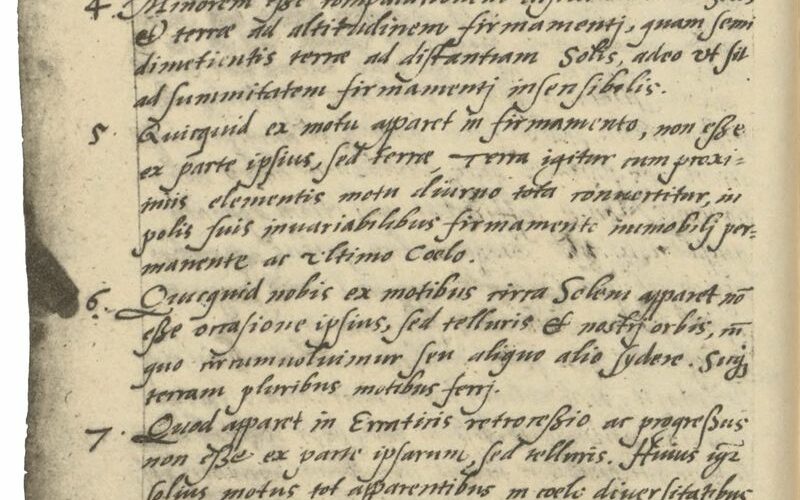 4. Minorem esse comparationem
& terræ ad altitudinem firmamentj, quam semi
dimetientis terræ ad distantiam Solis, adeo vt sit
ad summitatem firmamentj insensibilis.
5 Quicquid ex motu apparet in firmamento, non esse
ex parte ipsius, sed terræ, Terra igitur cum proxi=
mis elementis motu diurno tota conuertitur, in
polis suis inuariabilibus firmamento immobilj per=
manente ac vltimo Coelo.
6. Quicquid nobis ex motibus circa Solem apparet nō
esse occasione ipsius, sed telluris & nostrj orbis, in
quo circumuoluimur seu aliquo alio sydere. Sicqꝫ
terram pluribus motibus ferrj.
7. Quod apparet in Erraticis retrocessio ac progressus
non esse ex parte ipsarum, sed telluris. Huius igr̄
solius motus tot apparentibus in coelo diuersitatibus